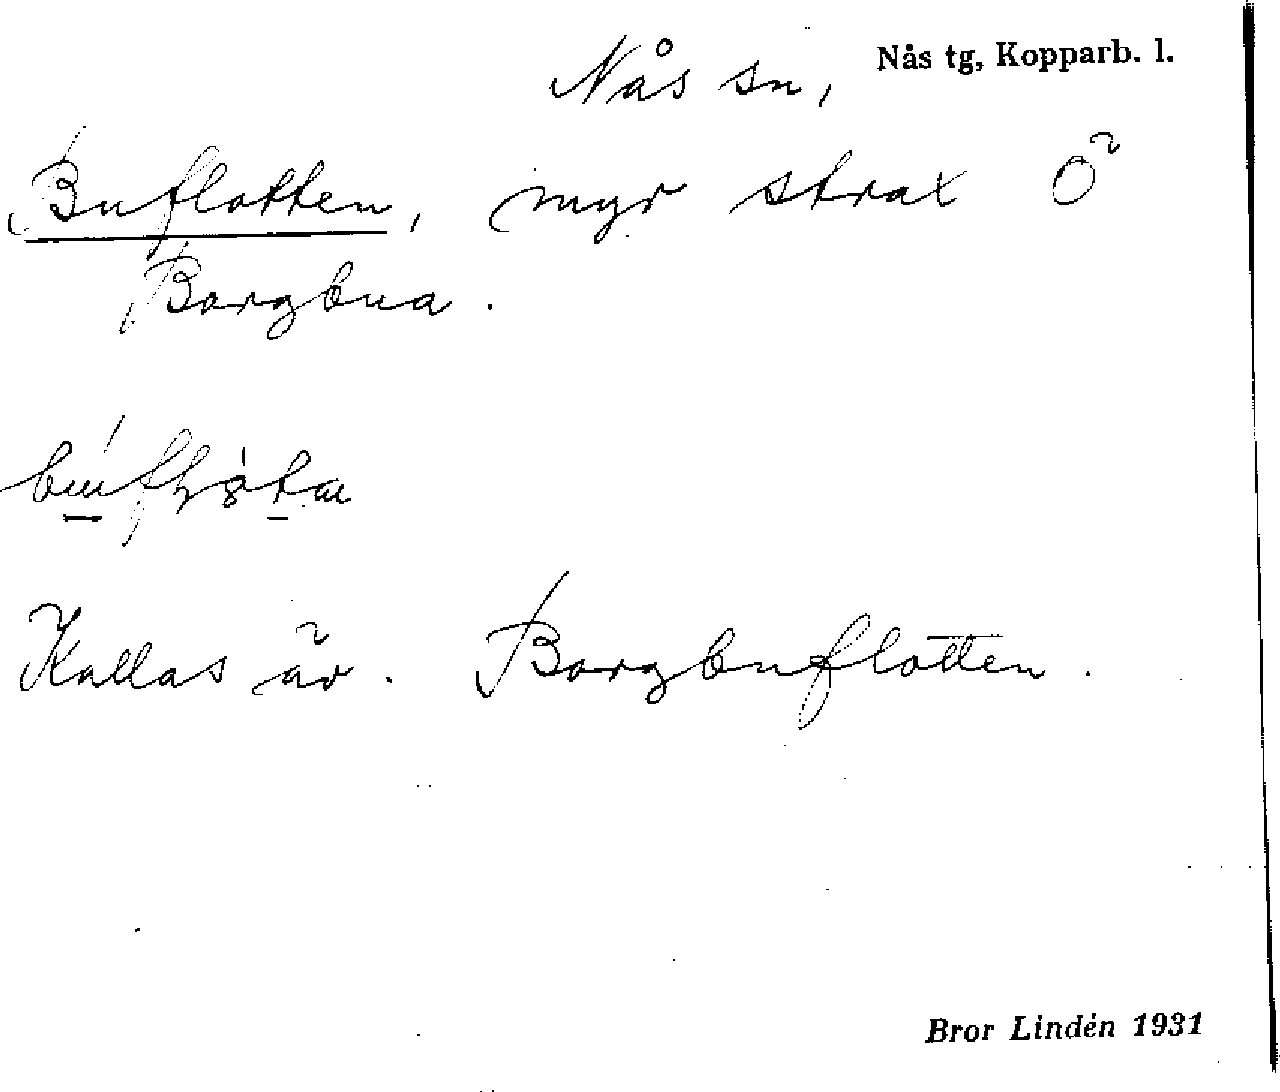 Nås sn, Nås tg, Kopparb. l.
Buflotten, myr strax Ö
Borgbua.
Kallas äv. Borgbuflotten.
Bror Lindén 1931